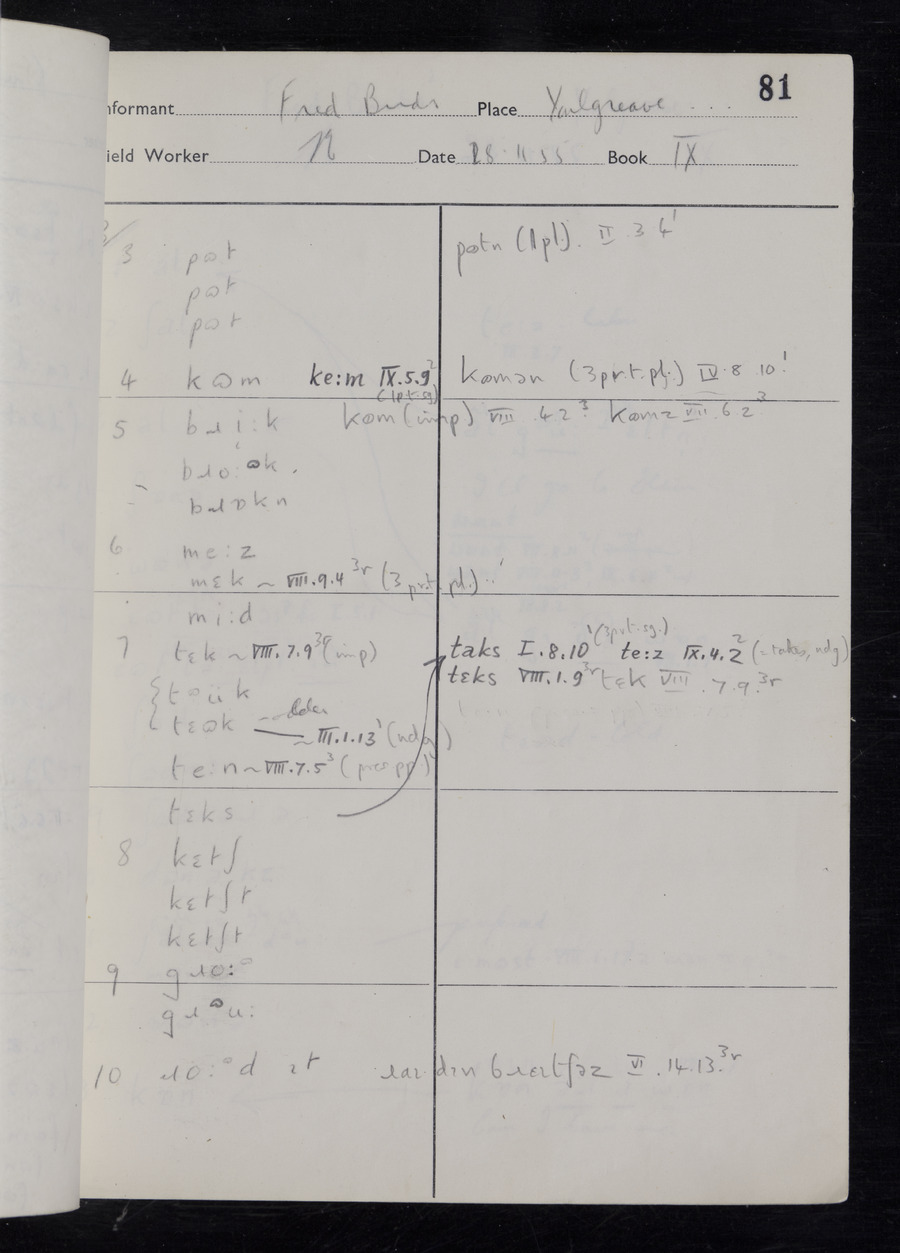 81
nformant Fred Place Youlgreave
ield Worker N Date 28.11.55 Book IX
3/
3 pɷt pɷtn (1pl). II.3.4¹
pɷt
pɷt
4 kɷm ke:m IX.5.9² (1pt.sg) kɷmən (3pr.t.pl.) IV.8.10¹
5 bɹi:k kɷm (imp) VIII.4.2³ kɷmz VII.6.2³
bɹo:ᶷk.
bɹɒkn
6 me:z
mɛk ~ VIII.9.4³ʳ (3 pr.t.pl.)
mi:d
7 tɛk ~ VIII.7.9³ʳ (imp) taks I.8.10¹ (3prt.sg.) te:z IX.4.2² (= takes, ndg)
tɛks VIII.1.9³ʳ tɛk VIII.7.9.³ʳ
tɷük
tɛɷk older ~ III.1.13¹ (ndg)
te:n ~ VIII.7.5³ (pres pp)
tɛks
8 kɛtʃ
kɛtʃt
kɛtʃt
9 gɹo:ᶷ
gɹᶷu:
10 ɹo:ᶷd ɪt VI.14.13.³ʳ